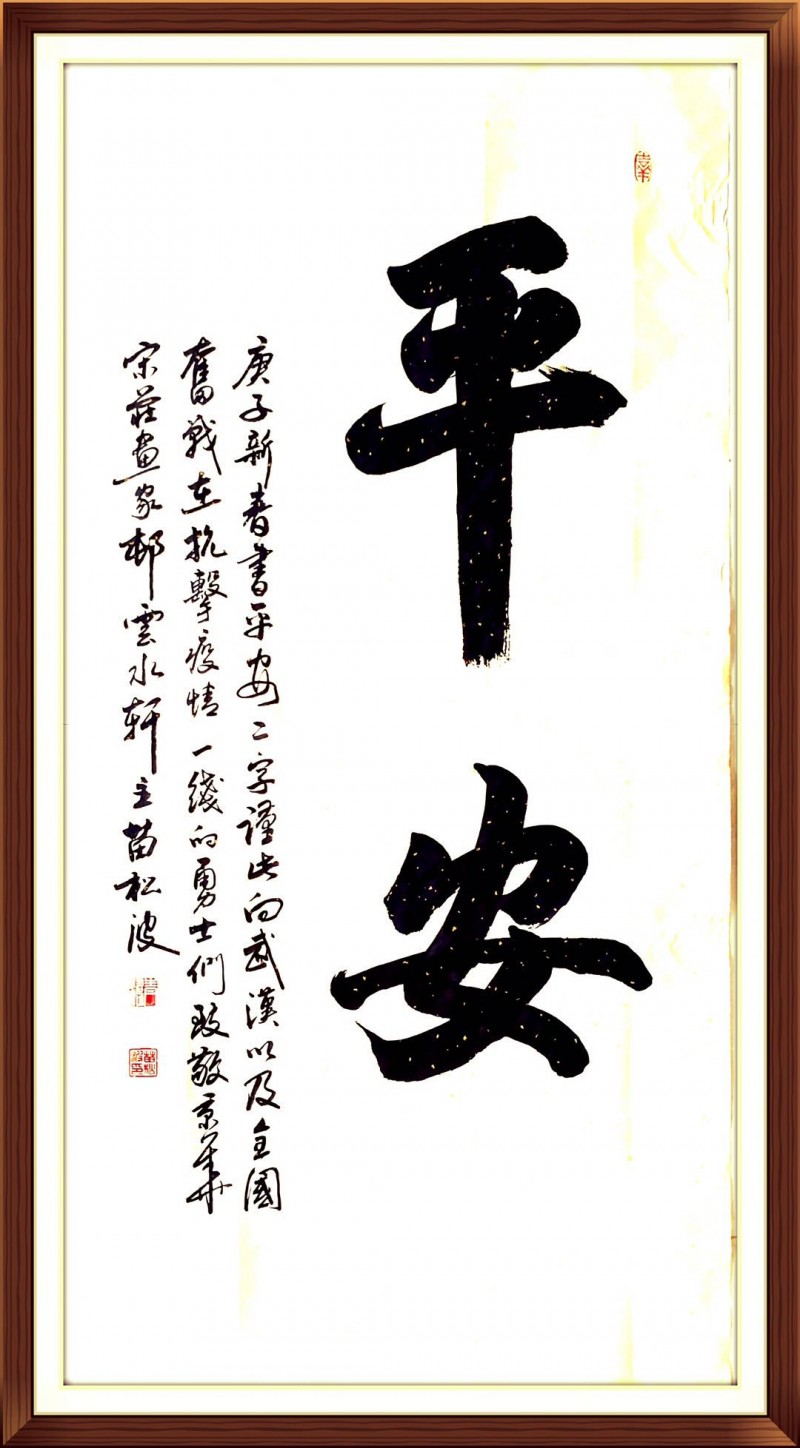 平安
庚子新春書平安二字謹此向武漢以及全國
奮戰在抗擊疫情一綫的勇士們致敬京華
宋莊畫家邨雲水軒主苗松波